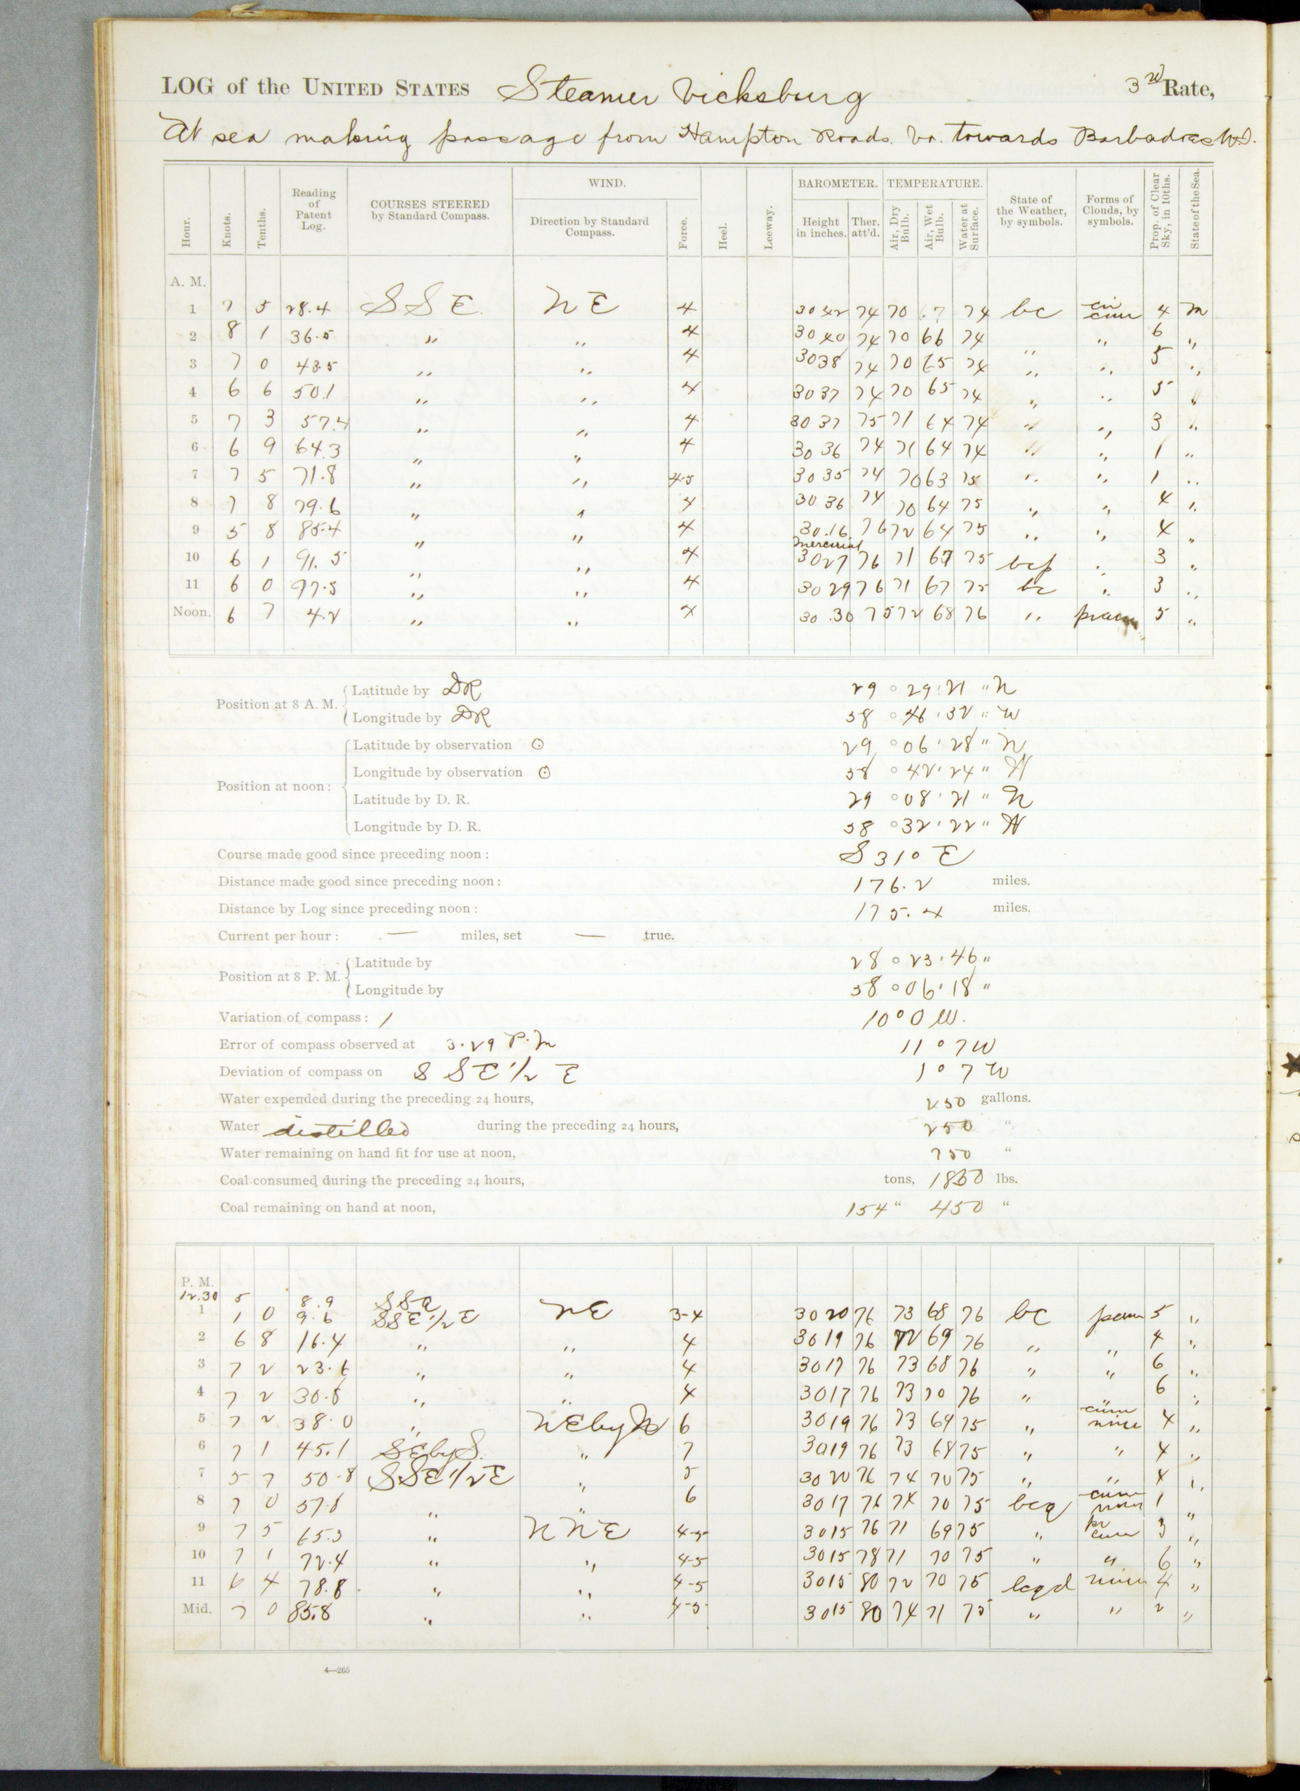 LOG of the UNITED STATES Steamer Vicksburg 3rd Rate,
At sea making passage from Hampton Roads. Va. towards Barbadoes W.I.
Hour. Knots. Tenths. Reading of Patent Log. COURSES STEERED by Standard Compass. WIND. Direction by Standard Compass. Force. Heel. Leeway. BAROMETER. Height in inches. Ther. att'd. TEMPERATURE. Air, Dry Bulb. Air, Wet Bulb. Water at Surface. State of the Weather, by symbols. Forms of Clouds, by symbols. Prop. of Clear Sky, in 10ths. State of the Sea.
A. M.
1 7 5 28.4 SSE NE 4 30 42 74 70 .7 74 bc cir cum 4 m
2 8 1 36.5 " " 4 30 40 74 70 66 74 " 6 "
3 7 0 43.5 " " 4 30 38 74 70 65 74 " " 5 "
4 6 6 50.1 " " 4 30 37 74 70 65 74 " " 5 "
5 7 3 57.4 " " 4 30 37 75 71 64 74 " " 3 "
6 6 9 64.3 " " 4 30 36 74 71 64 74 " " 1 "
7 7 5 71.8 " " 4-5 30 35 74 70 63 75 " " 1 "
8 7 8 79.6 " " 4 30 36 74 70 64 75 " " 4 "
9 5 8 85.4 " " 4 30.16 76 72 64 75 " " 4 "
mercurial
10 6 1 91.5 " " 4 30 27 76 71 67 75 bcp " 3 "
11 6 0 97.5 " " 4 30 29 76 71 67 75 bc " 3 "
Noon. 6 7 4.2 " " 4 30.30 75 72 68 76 " pcum 5 "
Position at 8 A. M. Latitude by DR 29 ° 29 ' 21 " N
Longitude by DR 58 ° 46 ' 32 " W
Position at noon: Latitude by observation ⊙ 29 ° 06 ' 28 " N
Longitude by observation ⊙ 58 ° 42 ' 24 " W
Latitude by D. R. 29 ° 08 ' 21 " N
Longitude by D. R. 58 ° 32 ' 22 " W
Course made good since preceding noon: S 31° E
Distance made good since preceding noon: 176.2 miles.
Distance by Log since preceding noon: 175.4 miles.
Current per hour: — miles, set — true.
Position at 8 P. M. Latitude by 28 ° 23 ' 46 "
Longitude by 58 ° 06 ' 18 "
Variation of compass: 10° 0 W.
Error of compass observed at 3.29 P.M 11 ° 7 W
Deviation of compass on SSE 1/2 E 1 ° 7 W
Water expended during the preceding 24 hours, 250 gallons.
Water distilled during the preceding 24 hours, 250 "
Water remaining on hand fit for use at noon, 750 "
Coal consumed during the preceding 24 hours, tons, 1830 lbs.
Coal remaining on hand at noon, 154 " 450 "
P. M.
12.30 5 8.9 SSE
1 1 0 9.6 SSE 1/2 E NE 3-4 30 20 76 73 68 76 bc pcum 5 "
2 6 8 16.4 " " 4 30 19 76 72 69 76 " " 4 "
3 7 2 23.6 " " 4 30 17 76 73 68 76 " " 6 "
4 7 2 30.8 " " 4 30 17 76 73 70 76 " 6 "
5 7 2 38.0 " NE by N 6 30 19 76 73 69 75 " cum nim 4 "
6 7 1 45.1 SE by S. " 7 30 19 76 73 68 75 " " 4 "
7 5 7 50.8 SSE 1/2 E " 5 30 20 76 74 70 75 " " 4 "
8 7 0 57.8 " " 6 30 17 76 74 70 75 bcq cum nim 1 "
9 7 5 65.3 " NNE 4-5 30 15 76 71 69 75 " cum 3 "
10 7 1 72.4 " " 4-5 30 15 78 71 70 75 " " 6 "
11 6 4 78.8 " " 4-5 30 15 80 72 70 75 bcqd nim 4 "
Mid. 7 0 85.8 " " 4-5 30 15 80 74 71 75 " " 2 "
4—265